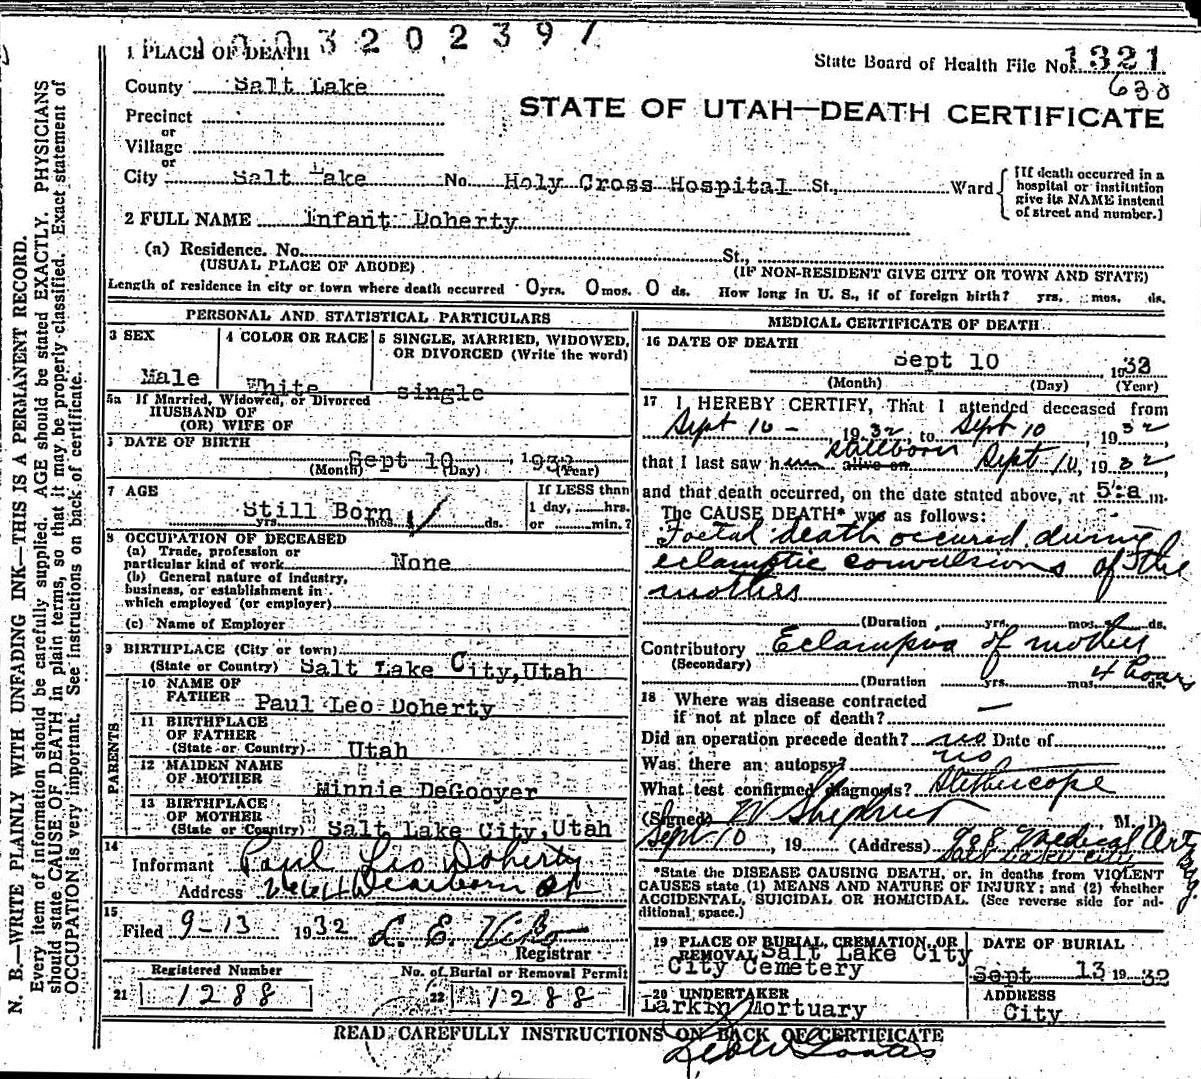 3202397
1 PLACE OF DEATH
State Board of Health File No. 1321
630
County Salt Lake
STATE OF UTAH—DEATH CERTIFICATE
Precinct
or
Village
or
City Salt Lake No. Holy Cross Hospital St., Ward
[If death occurred in a hospital or institution give its NAME instead of street and number.]
2 FULL NAME Infant Doherty
(a) Residence. No. St.,
(USUAL PLACE OF ABODE) (IF NON-RESIDENT GIVE CITY OR TOWN AND STATE)
Length of residence in city or town where death occurred 0 yrs. 0 mos. 0 ds. How long in U. S., if of foreign birth? yrs. mos. ds.
PERSONAL AND STATISTICAL PARTICULARS
3 SEX Male
4 COLOR OR RACE White
5 SINGLE, MARRIED, WIDOWED, OR DIVORCED (Write the word) single
5a If Married, Widowed, or Divorced
HUSBAND OF
(OR) WIFE OF
DATE OF BIRTH
Sept 10 1932
(Month) (Day) (Year)
7 AGE
Still Born
yrs. mos. ds.
If LESS than
1 day, hrs.
or min.?
8 OCCUPATION OF DECEASED
(a) Trade, profession or
particular kind of work None
(b) General nature of industry,
business, or establishment in
which employed (or employer)
(c) Name of Employer
9 BIRTHPLACE (City or town)
(State or Country) Salt Lake City, Utah
PARENTS
10 NAME OF
FATHER Paul Leo Doherty
11 BIRTHPLACE
OF FATHER
(State or Country) Utah
12 MAIDEN NAME
OF MOTHER Minnie DeGooyer
13 BIRTHPLACE
OF MOTHER
(State or Country) Salt Lake City, Utah
14
Informant Paul Leo Doherty
Address Dearborn St
15
Filed 9-13 1932 L. E. Viko
Registrar
Registered Number
21 1288
No. of Burial or Removal Permit
22 1288
MEDICAL CERTIFICATE OF DEATH
16 DATE OF DEATH
Sept 10 1932
(Month) (Day) (Year)
17 I HEREBY CERTIFY, That I attended deceased from
Sept 10 - 1932, to Sept 10, 1932
stillborn
that I last saw him alive on Sept 10, 1932
and that death occurred, on the date stated above, at 5:a m.
The CAUSE DEATH* was as follows:
Foetal death occured during
eclamptic convulsions of the
mother
(Duration yrs. mos. ds.
Contributory Eclampsia of mother
(Secondary)
4 hours
(Duration yrs. mos. ds.
18 Where was disease contracted
if not at place of death? —
Did an operation precede death? no Date of
Was there an autopsy? no
What test confirmed diagnosis? Stethescope
(Signed) M. D.
Sept 10, 19 (Address) 908 Medical Arts Bldg.
Salt Lake City
*State the DISEASE CAUSING DEATH, or, in deaths from VIOLENT
CAUSES state (1) MEANS AND NATURE OF INJURY; and (2) whether
ACCIDENTAL, SUICIDAL OR HOMICIDAL. (See reverse side for ad-
ditional space.)
19 PLACE OF BURIAL, CREMATION, OR
REMOVAL Salt Lake City
City Cemetery
DATE OF BURIAL
Sept 13 1932
20 UNDERTAKER
Larkin Mortuary
ADDRESS
City
READ CAREFULLY INSTRUCTIONS ON BACK OF CERTIFICATE
N. B.—WRITE PLAINLY WITH UNFADING INK—THIS IS A PERMANENT RECORD.
Every item of information should be carefully supplied. AGE should be stated EXACTLY. PHYSICIANS
should state CAUSE OF DEATH in plain terms, so that it may be properly classified. Exact statement of
OCCUPATION is very important. See instructions on back of certificate.